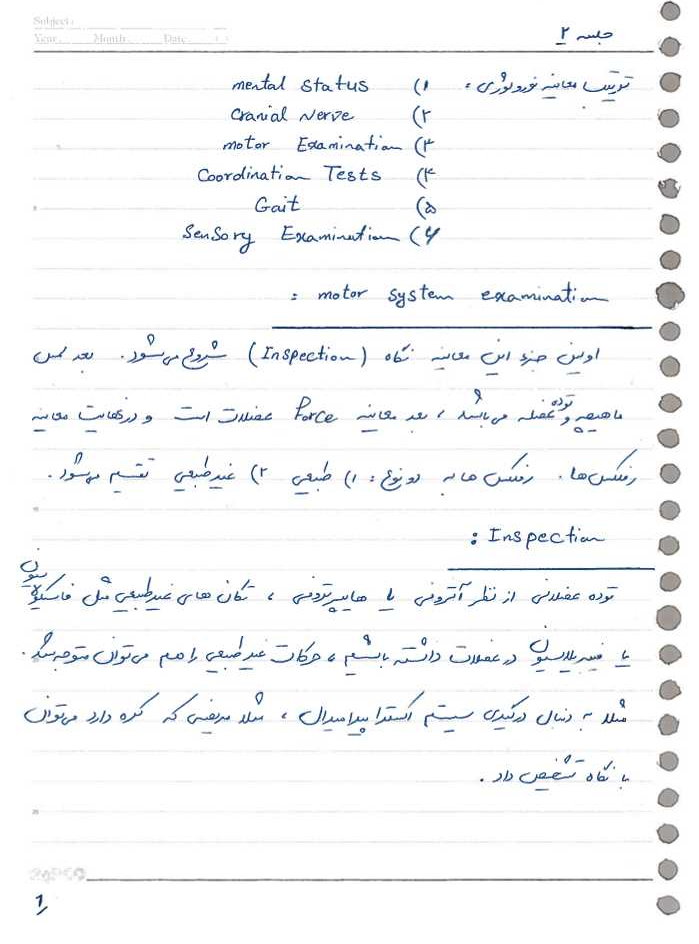 Subject:
Year. Month. Date. ( )
جلسه ۲
ترتیب معاینه نورولوژی: ۱) mental status
۲) Cranial Nerve
۳) motor Examination
۴) Coordination Tests
۵) Gait
۶) Sensory Examination
motor system examination :
اولین جزء این معاینه نگاه (Inspection) شروع می‌شود. بعد لمس
ماهیچه و توده عضله می‌باشد، بعد معاینه Force عضلات است و درنهایت معاینه
رفلکس‌ها. رفلکس ها به دو نوع: ۱) طبیعی ۲) غیرطبیعی تقسیم می‌شود.
Inspection :
توده عضلانی از نظر آتروفی یا هایپرتروفی، تکان های غیرطبیعی مثل فاسیکولاسیون
یا فیبریلاسیون در عضلات داشته باشیم، حرکات غیرطبیعی را هم می‌توان متوجه شد.
مثلا به دنبال درگیری سیستم اکستراپیرامیدال، مثلا مریضی که کره دارد می‌توان
با نگاه تشخیص داد.
1